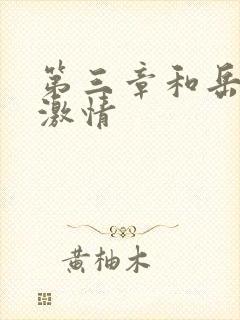 第三章和岳
激情
黄柚木